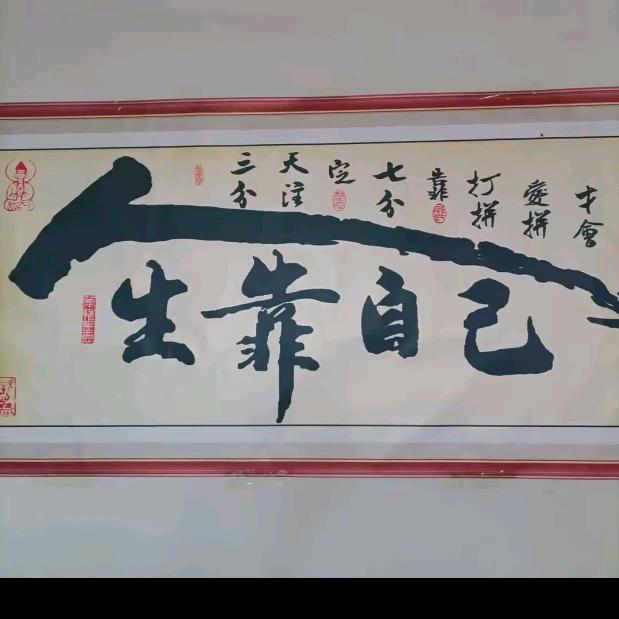 三分
天注
定
七分
靠
打拼
愛拼
才會
人
生靠自己